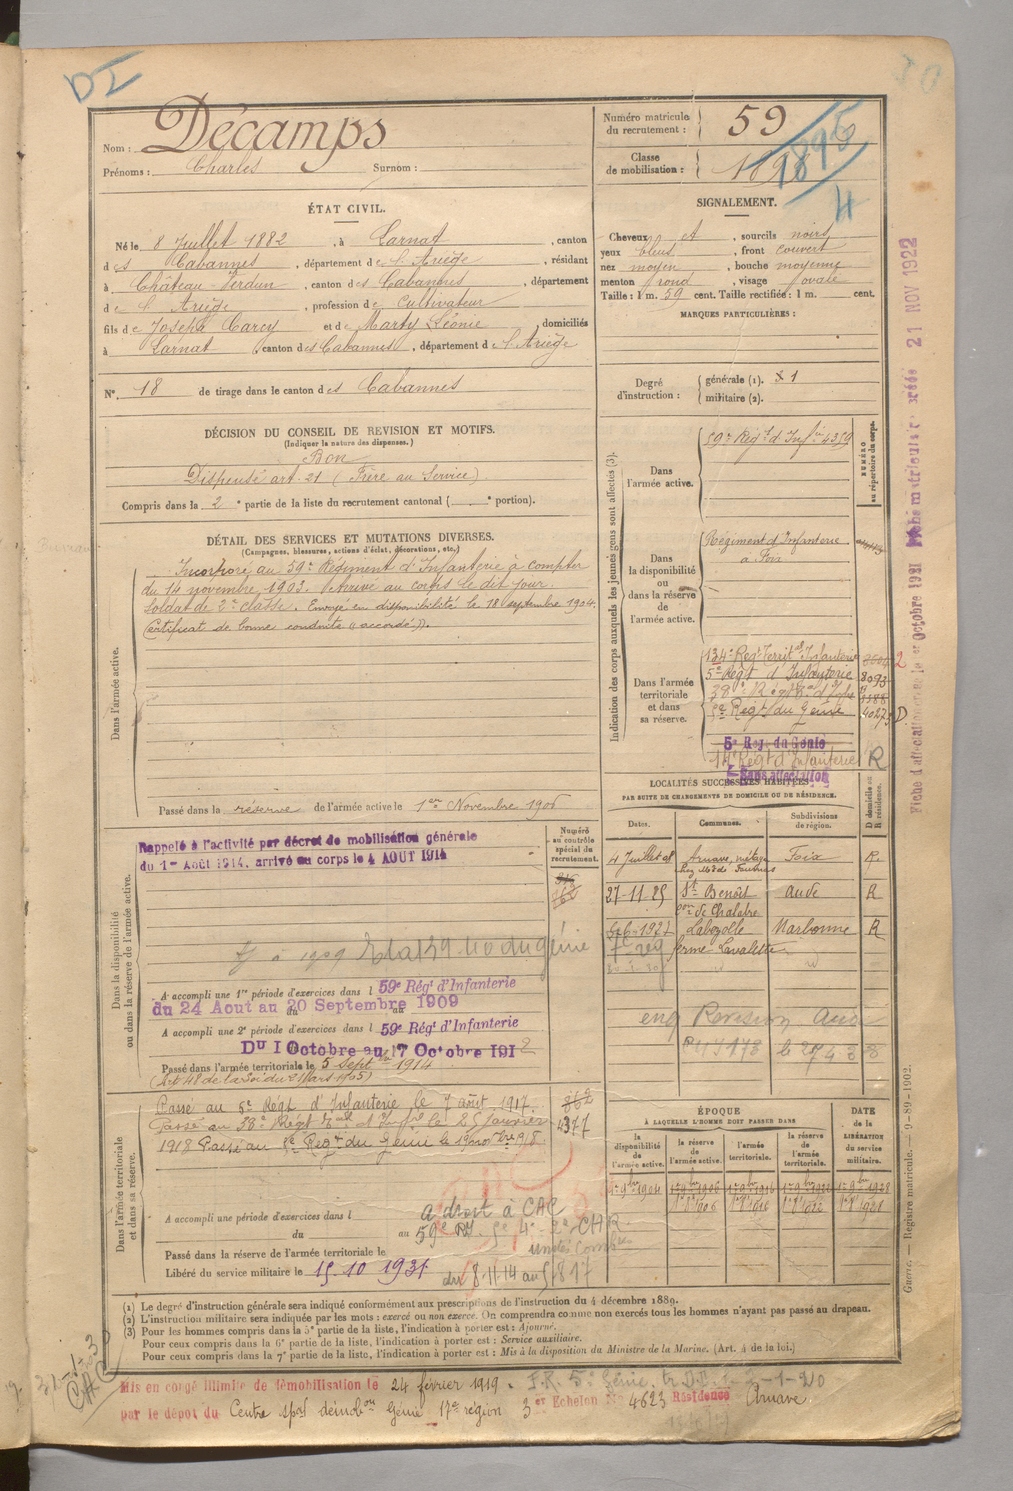 DI
Nom : Décamps
Prénoms : Charles Surnom :
ÉTAT CIVIL.
Né le 8 Juillet 1882, à Larnat, canton
des Cabannes, département de l'Ariège, résidant
à Château-Verdun, canton des Cabannes, département
de l'Ariège, profession de Cultivateur
fils de Joseph Carcy et de Marty Léonie, domiciliés
à Larnat, canton des Cabannes, département de l'Ariège
N° 18 de tirage dans le canton des Cabannes
DÉCISION DU CONSEIL DE REVISION ET MOTIFS.
(Indiquer la nature des dispenses.)
Bon
Dispensé art. 21 (Frère au Service)
Compris dans la 2e partie de la liste du recrutement cantonal ( e portion).
DÉTAIL DES SERVICES ET MUTATIONS DIVERSES.
(Campagnes, blessures, actions d'éclat, décorations, etc.)
Dans l'armée active.
Incorporé au 59e Régiment d'Infanterie à compter
du 14 novembre 1903. Arrivé au corps le dit jour.
Soldat de 2e classe. Envoyé en disponibilité le 18 septembre 1904.
Certificat de bonne conduite « accordé ».
Passé dans la réserve de l'armée active le 1er Novembre 1906
Numéro au contrôle spécial du recrutement.
Dans la disponibilité ou dans la réserve de l'armée active.
Rappelé à l'activité par décret de mobilisation générale
du 1er Août 1914. arrivé au corps le 4 AOUT 1914
A accompli une 1re période d'exercices dans l 59e Régt d'Infanterie
du 24 Aout au 20 Septembre 1909
A accompli une 2e période d'exercices dans l 59e Régt d'Infanterie
Du 1 Octobre au 17 Octobre 1912
Passé dans l'armée territoriale le 5 Septbre 1914
(Art 48 de la Loi du 21 Mars 1905)
Dans l'armée territoriale et dans sa réserve.
Passé au 5e Régt d'Infanterie le 7 août 1917. 862
Passé au 38e Régt d'Infie le 25 Janvier 4377
1918 Passé au 5e Régt du Génie le
A accompli une période d'exercices dans l a droit à CAC
du au 59e RI
Passé dans la réserve de l'armée territoriale le
Libéré du service militaire le 15.10 1931 du 8.11.14 au
Numéro matricule du recrutement : 59
Classe de mobilisation : 1895
4
SIGNALEMENT.
Cheveux, sourcils noirs
yeux bleus, front couvert
nez moyen, bouche moyenne
menton rond, visage ovale
Taille : 1 m. 59 cent. Taille rectifiée : 1 m. cent.
MARQUES PARTICULIÈRES :
Degré d'instruction : générale (1). 1
militaire (2).
Indication des corps auxquels les jeunes gens sont affectés (3).
NUMÉRO au répertoire du corps.
Dans l'armée active. 59e Régt d'Infie 4359
Dans la disponibilité ou dans la réserve de l'armée active. Régiment d'Infanterie
à Foix
Dans l'armée territoriale et dans sa réserve. 134e Régt Territal d'Infanterie
5e Régt d'Infanterie 8093
5e Régt du Génie
5e Rég. du Génie
14e Régt d'Infanterie R
Sans affectation
LOCALITÉS SUCCESSIVES HABITÉES
PAR SUITE DE CHANGEMENTS DE DOMICILE OU DE RÉSIDENCE.
Dates. Communes. Subdivisions de région. D domicile ou R résidence.
4 Juillet 08 Arnave, Foix R.
27-11-25 St Benoît Aude R
Con de Chalabre
Narbonne R
ferme Lavalette
Revision Aude
ÉPOQUE
À LAQUELLE L'HOMME DOIT PASSER DANS
la disponibilité de l'armée active. la réserve de l'armée active. l'armée territoriale. la réserve de l'armée territoriale.
DATE de la LIBÉRATION du service militaire.
(1) Le degré d'instruction générale sera indiqué conformément aux prescriptions de l'instruction du 4 décembre 1889.
(2) L'instruction militaire sera indiquée par les mots : exercé ou non exercé. On comprendra comme non exercés tous les hommes n'ayant pas passé au drapeau.
(3) Pour les hommes compris dans la 5e partie de la liste, l'indication à porter est : Ajourné.
Pour ceux compris dans la 6e partie de la liste, l'indication à porter est : Service auxiliaire.
Pour ceux compris dans la 7e partie de la liste, l'indication à porter est : Mis à la disposition du Ministre de la Marine. (Art. 4 de la loi.)
Mis en congé illimité de démobilisation le 24 février 1919.
par le dépôt du Centre spal démobon Génie 17e région 3er Echelon No 4623 Résidence Arnave
Guerre. — Registre matricule. — 9-89-1902.
21 NOV 1922